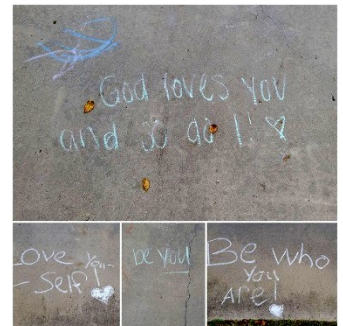 God loves you
and so do I! ♡
Love You-
-Self!
be you
Be who
you
Are!